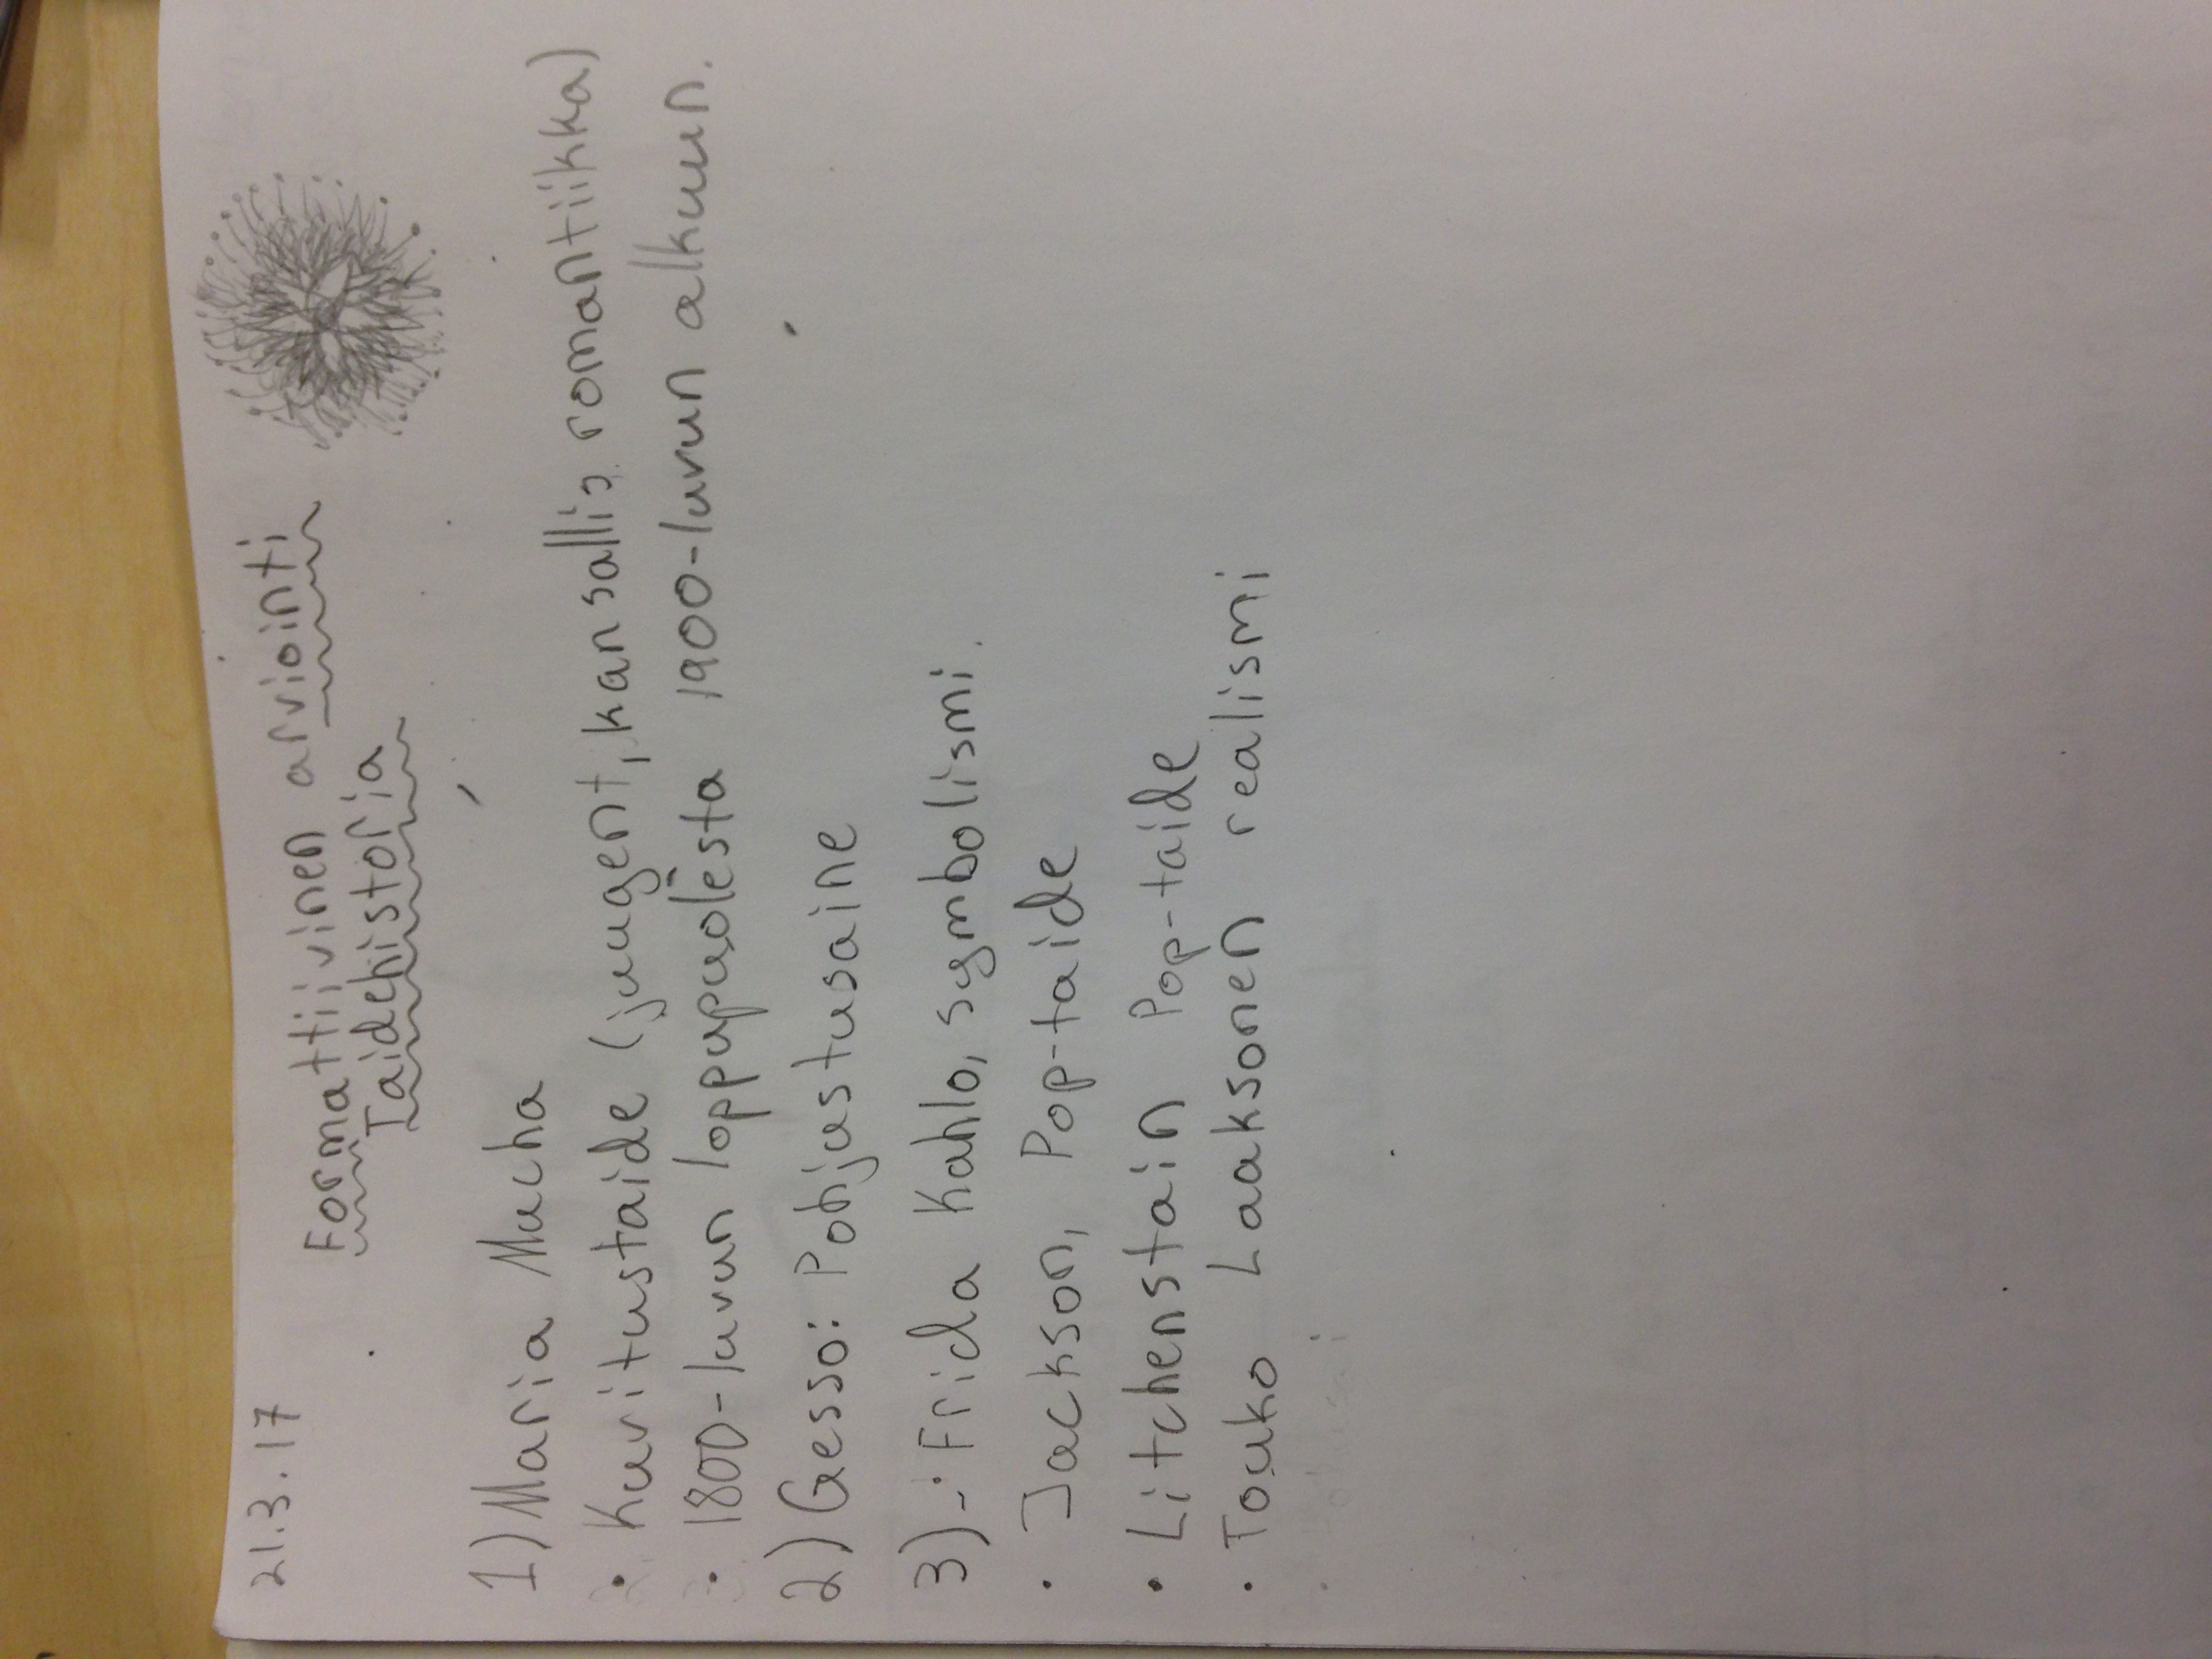 21.3.17
Formatiivinen arviointi
Taidehistoria
1) Maria Mucha
• Kuvitustaide (juugent, kansallis romantiikka)
• 1800-luvun loppupuolesta 1900-luvun alkuun.
2) Gesso: Pohjustusaine
3) -: Frida Kahlo, symbolismi.
• Jackson, Pop-taide
• Litchenstain Pop-taide
• Touko Laaksonen realismi